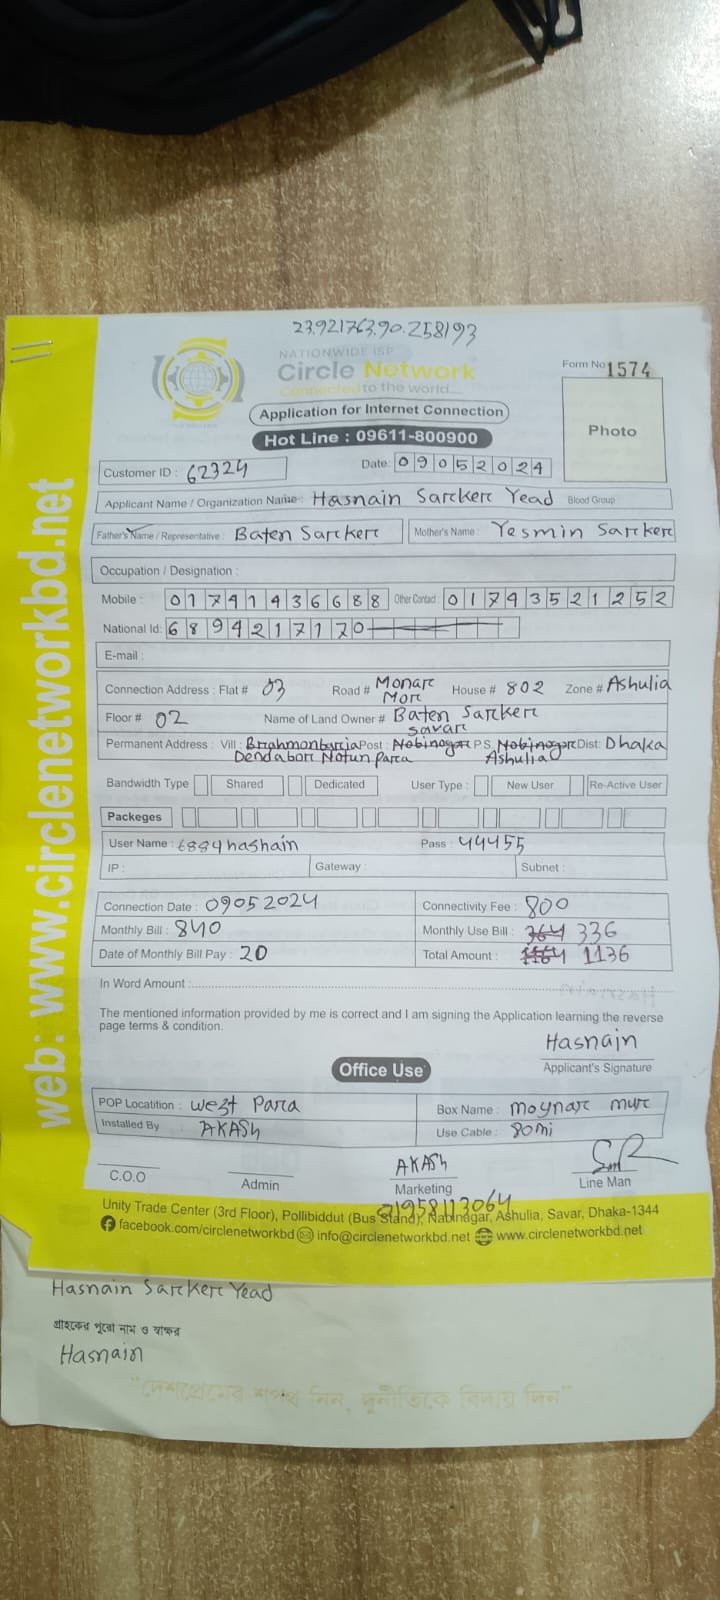 23.921763,90.258193
NATIONWIDE ISP
Circle Network
Connected to the world....
Form No 1574
Application for Internet Connection
Hot Line : 09611-800900
Photo
Customer ID : 62324
Date: 09052024
Applicant Name / Organization Name : Hasnain Sarker Yead Blood Group
Father's Name / Representative : Baten Sarker Mother's Name : Yesmin Sarker
Occupation / Designation :
Mobile : 01741436688 Other Contact : 01793521252
National Id: 6894217170
E-mail :
Connection Address : Flat # 03 Road # Monar More House # 802 Zone # Ashulia
Floor # 02 Name of Land Owner # Baten Sarker
savar
Permanent Address : Vill : Brahmonbaria Post : Nobinogor P.S. Nobinogor Dist: Dhaka
Dendabor Notun Para Ashulia
Bandwidth Type Shared Dedicated User Type : New User Re-Active User
Packeges
User Name : Pass : 44455
IP : Gateway : Subnet :
Connection Date : 09052024 Connectivity Fee : 800
Monthly Bill : 840 Monthly Use Bill : 364 336
Date of Monthly Bill Pay : 20 Total Amount : 1136
In Word Amount :
The mentioned information provided by me is correct and I am signing the Application learning the reverse
page terms & condition.
Hasnain
Office Use
Applicant's Signature
POP Locatition : West Para Box Name : moynar mur
Installed By : AKASH Use Cable : 80mi
AKASH
C.O.O Admin Marketing Line Man
01958113064
Unity Trade Center (3rd Floor), Pollibiddut (Bus Stand), Nabinagar, Ashulia, Savar, Dhaka-1344
facebook.com/circlenetworkbd info@circlenetworkbd.net www.circlenetworkbd.net
web: www.circlenetworkbd.net
Hasnain Sarker Yead
গ্রাহকের পুরো নাম ও স্বাক্ষর
Hasnain
"দেশপ্রেমের শপথ নিন, দুর্নীতিকে বিদায় দিন"